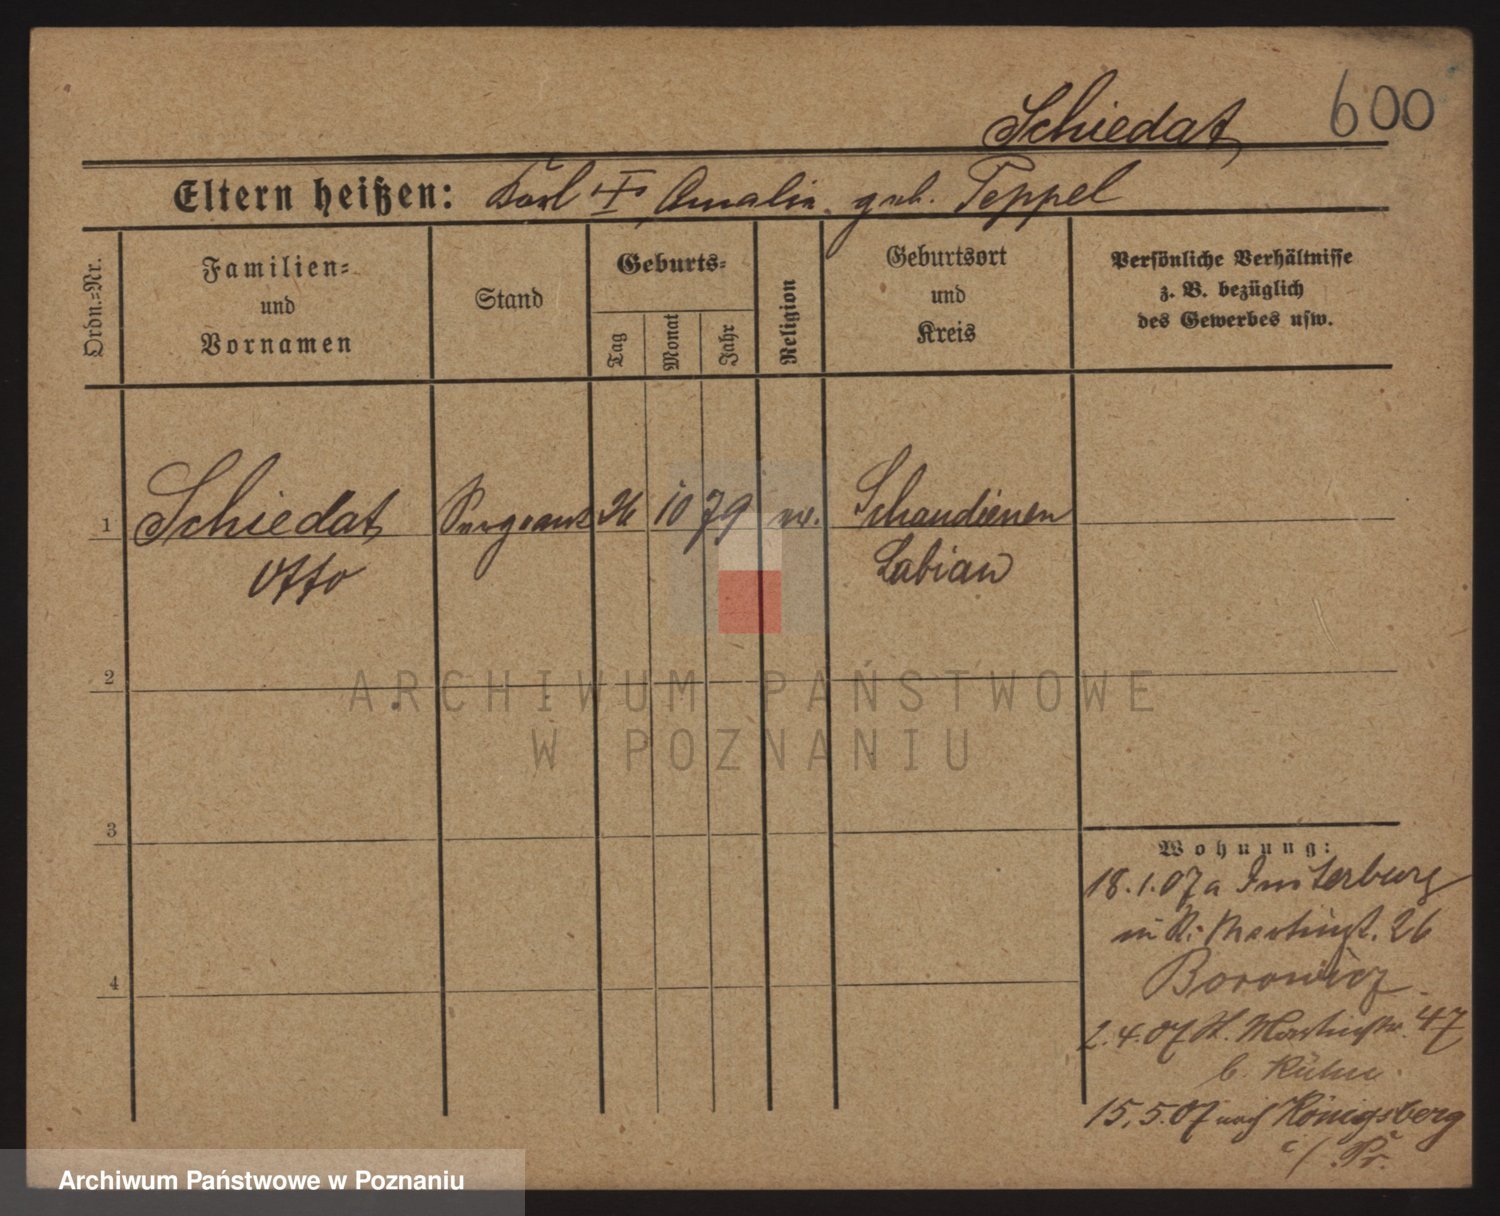 Schiedat 600
Eltern heißen: Karl Amalie geb. Teppel
Ordn.=Nr.
Familien=
und
Vornamen
Stand
Geburts=
Tag
Monat
Jahr
Religion
Geburtsort
und
Kreis
Persönliche Verhältnisse
z. B. bezüglich
des Gewerbes usw.
1 Schiedat Sergeant 26 10 79 ev. Schaudienen
Otto Labiau
2
ARCHIWUM PAŃSTWOWE
W POZNANIU
3
4
Wohnung:
18.1.07 a Insterburg
26
Borowicz
2.4.07 St. Martinstr. 47
b. Kühne
15.5.07 nach Königsberg
i/Pr.
Archiwum Państwowe w Poznaniu